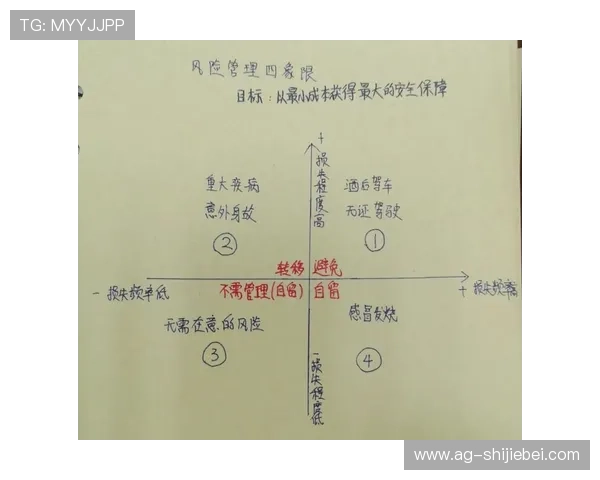 TG: MYYJJPP
风险管理四象限
目标：以最小成本获得最大的安全保障
+
损失程度高
重大疾病
意外身故
②
酒后驾车
无证驾驶
①
转移 避免
- 损失频率低
不需管理(自留) 自留
+ 损失频率高
无需在意的风险
③
感冒发烧
④
- 损失程度低
www.ag-shijiebei.com